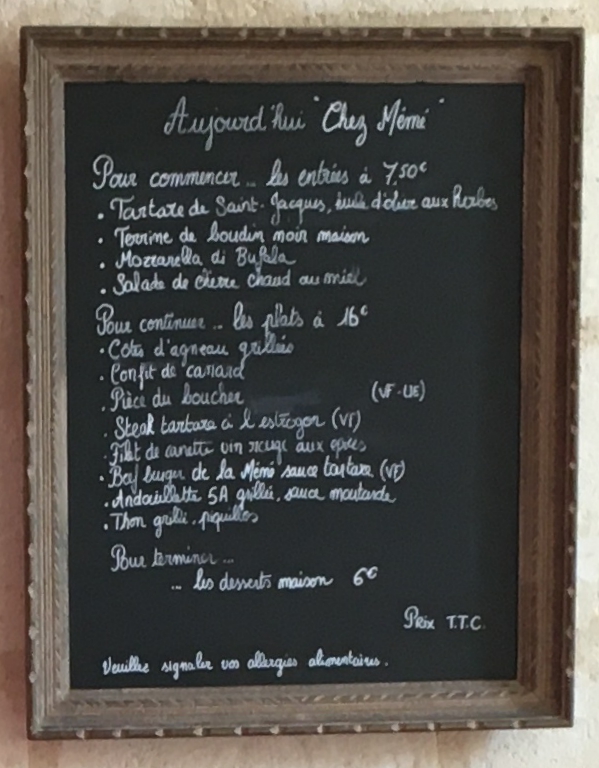 Aujourd'hui "Chez Mémé"
Pour commencer... les entrées à 7,50€
. Tartare de Saint-Jacques, huile d'olive aux herbes
. Terrine de boudin noir maison
. Mozzarella di Bufala
. Salade de chèvre chaud au miel
Pour continuer... les plats à 16€
. Côtes d'agneau grillées
. Confit de canard
. Pièce du boucher (VF-UE)
. Steak tartare à l'estragon (VF)
. Filet de canette vin rouge aux épices
. Bœf burger de la Mémé sauce tartare (VF)
. Andouillette 5A grillée, sauce moutarde
. Thon grillé, piquillos
Pour terminer...
... les desserts maison 6€
Prix T.T.C.
Veuillez signaler vos allergies alimentaires.